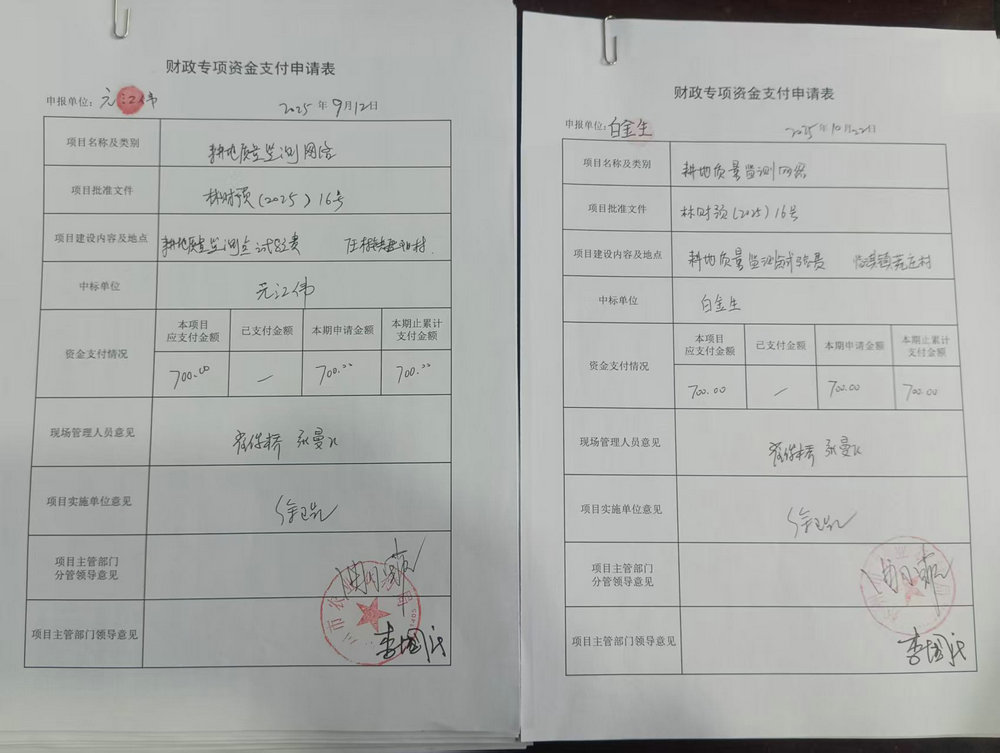 财政专项资金支付申请表
申报单位：元江伟
2025年9月12日
项目名称及类别 耕地质量监测网络
项目批准文件 林财预(2025)16号
项目建设内容及地点 耕地质量监测点试验费 村
中标单位 元江伟
资金支付情况
本项目应支付金额 已支付金额 本期申请金额 本期止累计支付金额
700.00 — 700.00 700.00
现场管理人员意见 张曼
项目实施单位意见 徐
项目主管部门分管领导意见
项目主管部门领导意见 李国
财政专项资金支付申请表
申报单位：白金生
2025年10月22日
项目名称及类别 耕地质量监测网络
项目批准文件 林财预(2025)16号
项目建设内容及地点 耕地质量监测试验费 临淇镇 庄村
中标单位 白金生
资金支付情况
本项目应支付金额 已支付金额 本期申请金额 本期止累计支付金额
700.00 — 700.00 700.00
现场管理人员意见 张曼
项目实施单位意见 徐
项目主管部门分管领导意见
项目主管部门领导意见 李国